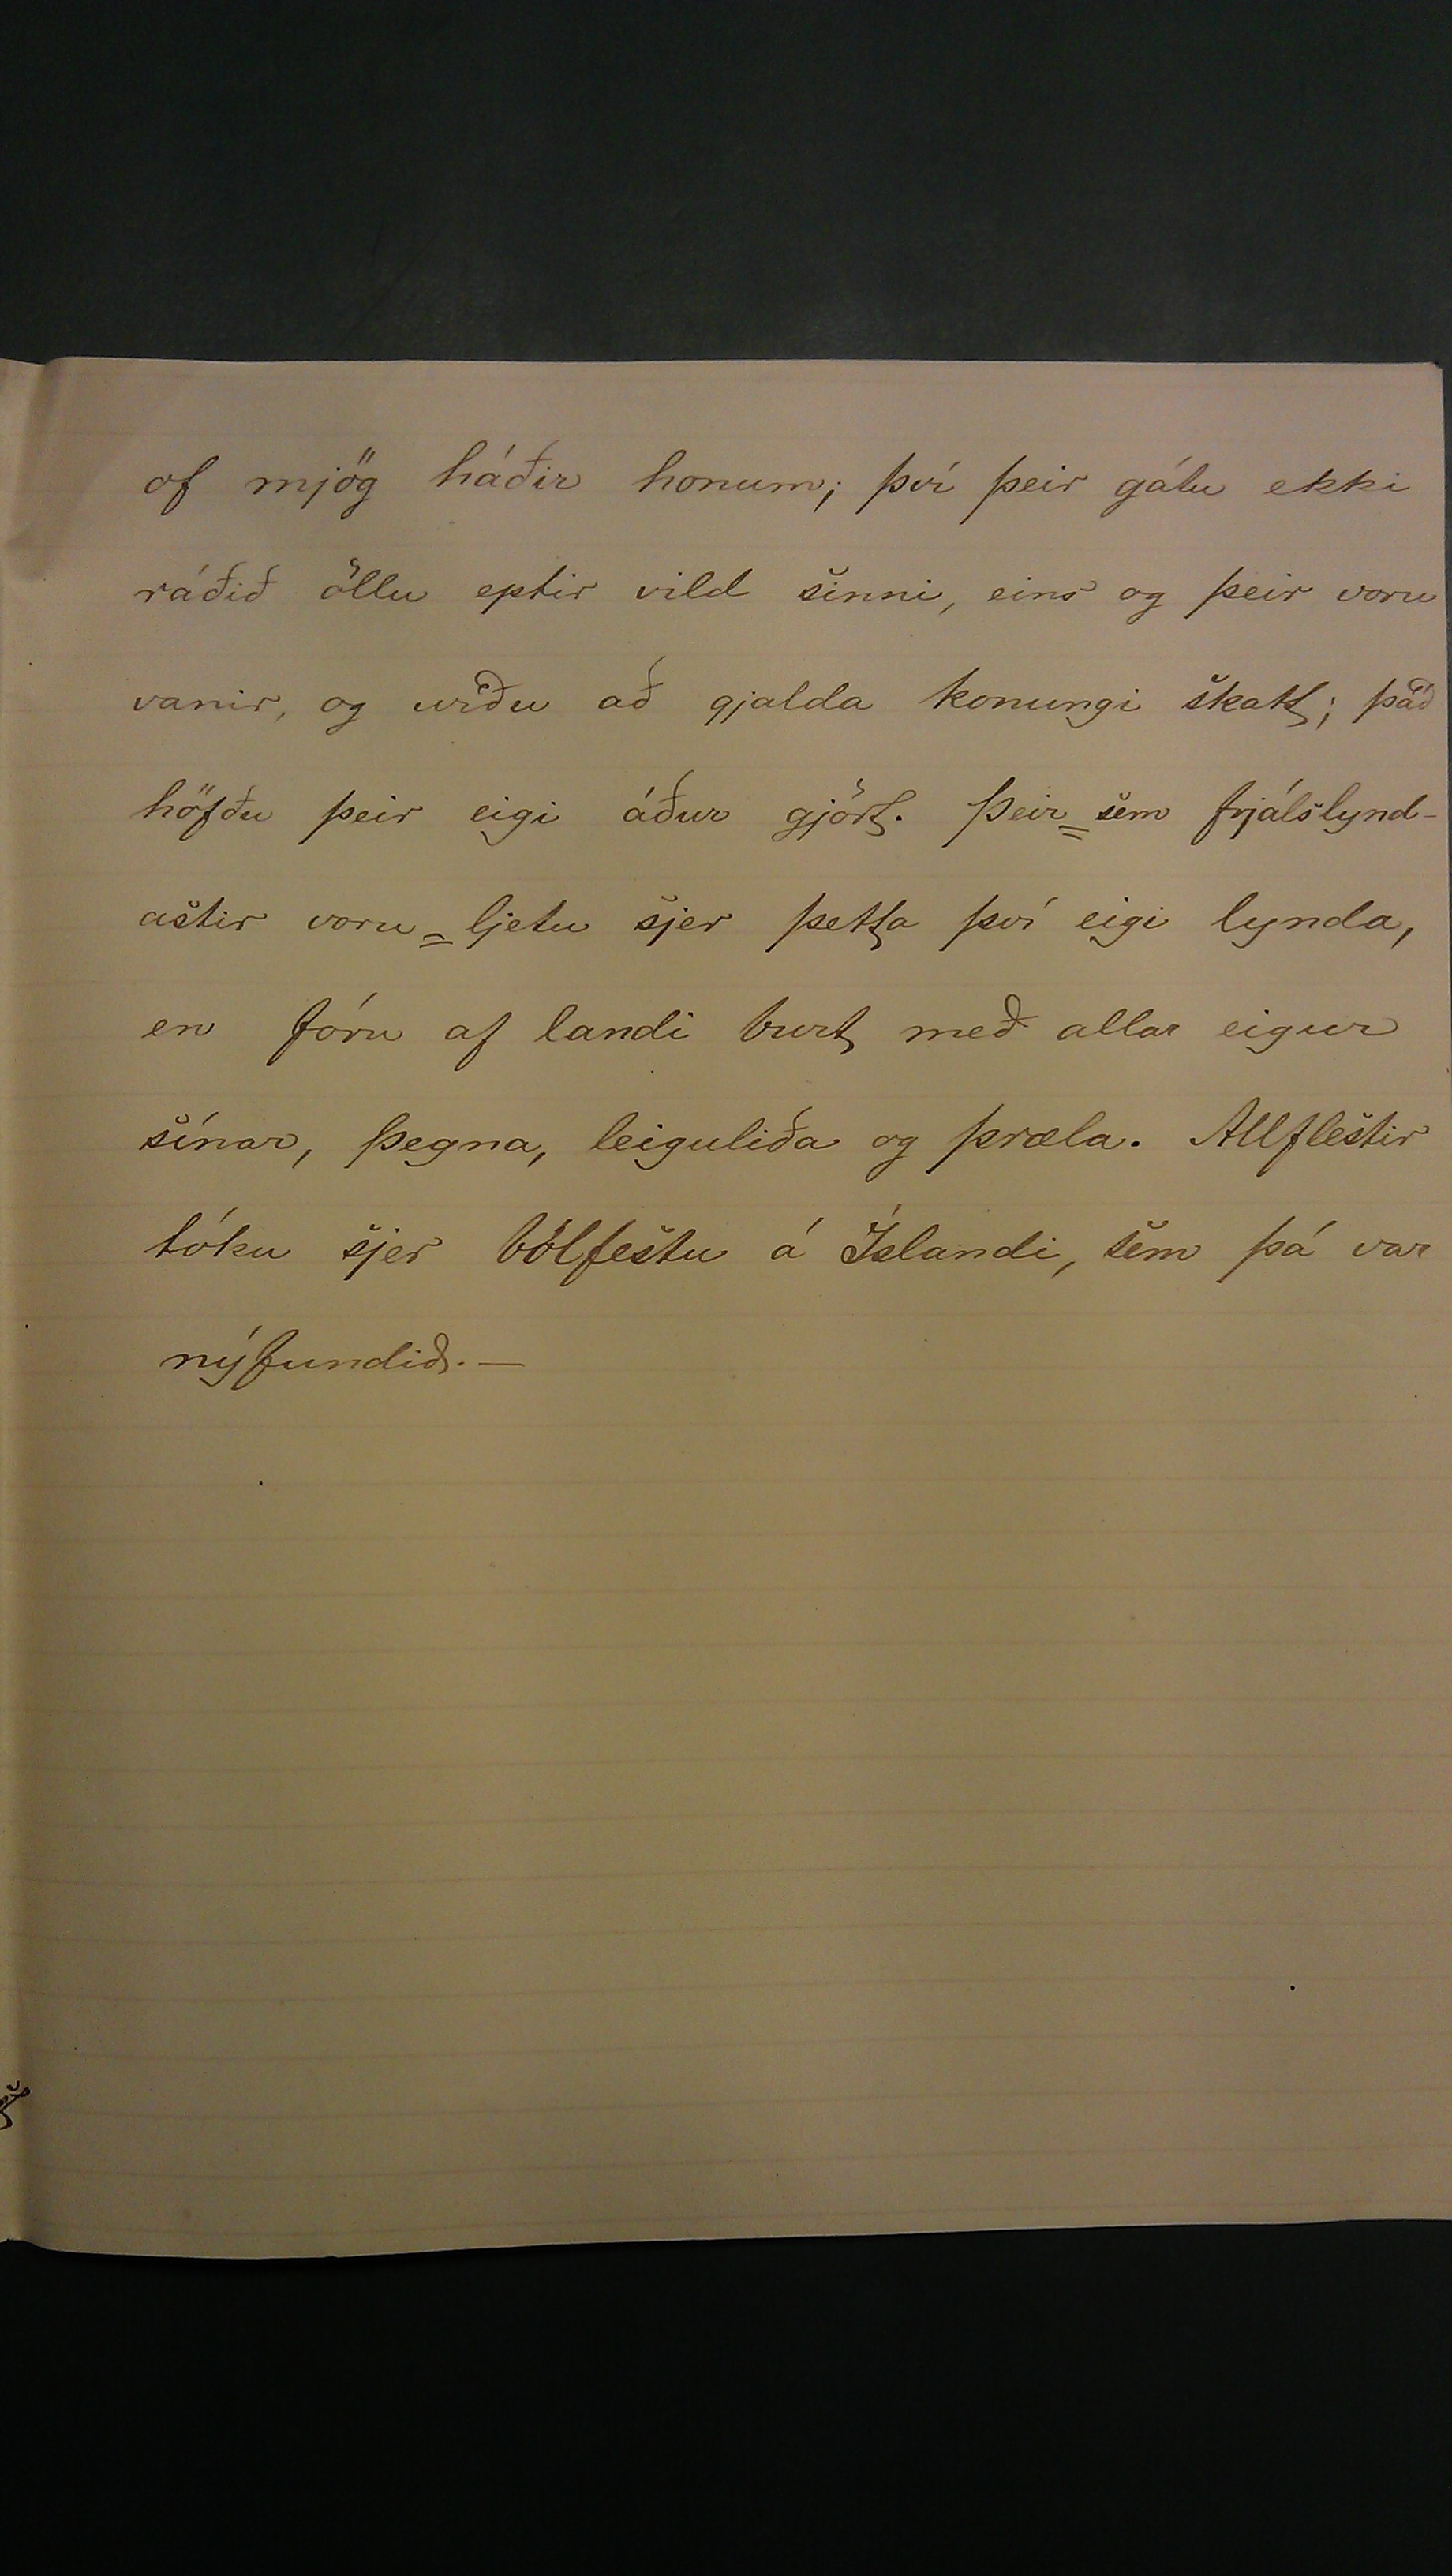 of mjög háðir honum; því þeir gátu ekki
ráðið öllu eptir vild sinni, eins og þeir voru
vanir, og urðu að gjalda konungi skatt; það
höfðu þeir eigi áður gjört. Þeir = sem frjálslynd-
astir voru = ljetu sjer þetta því eigi lynda,
en fóru af landi burt með allar eigur
sínar, þegna, leiguliða og þræla. Allflestir
tóku sjer bólfestu á Íslandi, sem þá var
nýfundið. —